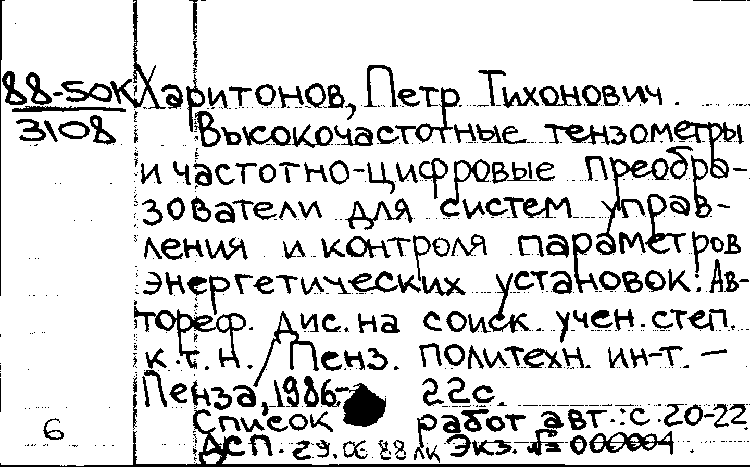 88-50К Харитонов, Петр Тихонович.
3108 Высокочастотные тензометры
и частотно-цифровые преобра-
зователи для систем управ-
ления и контроля параметров
энергетических установок: Ав-
тореф. дис. на соиск. учен. степ.
к.т.н. / Пенз. политехн. ин-т. —
Пенза, 1986- 22с.
Список работ авт.: с. 20-22
6 ДСП. 29.06.88 Экз. № 000004.